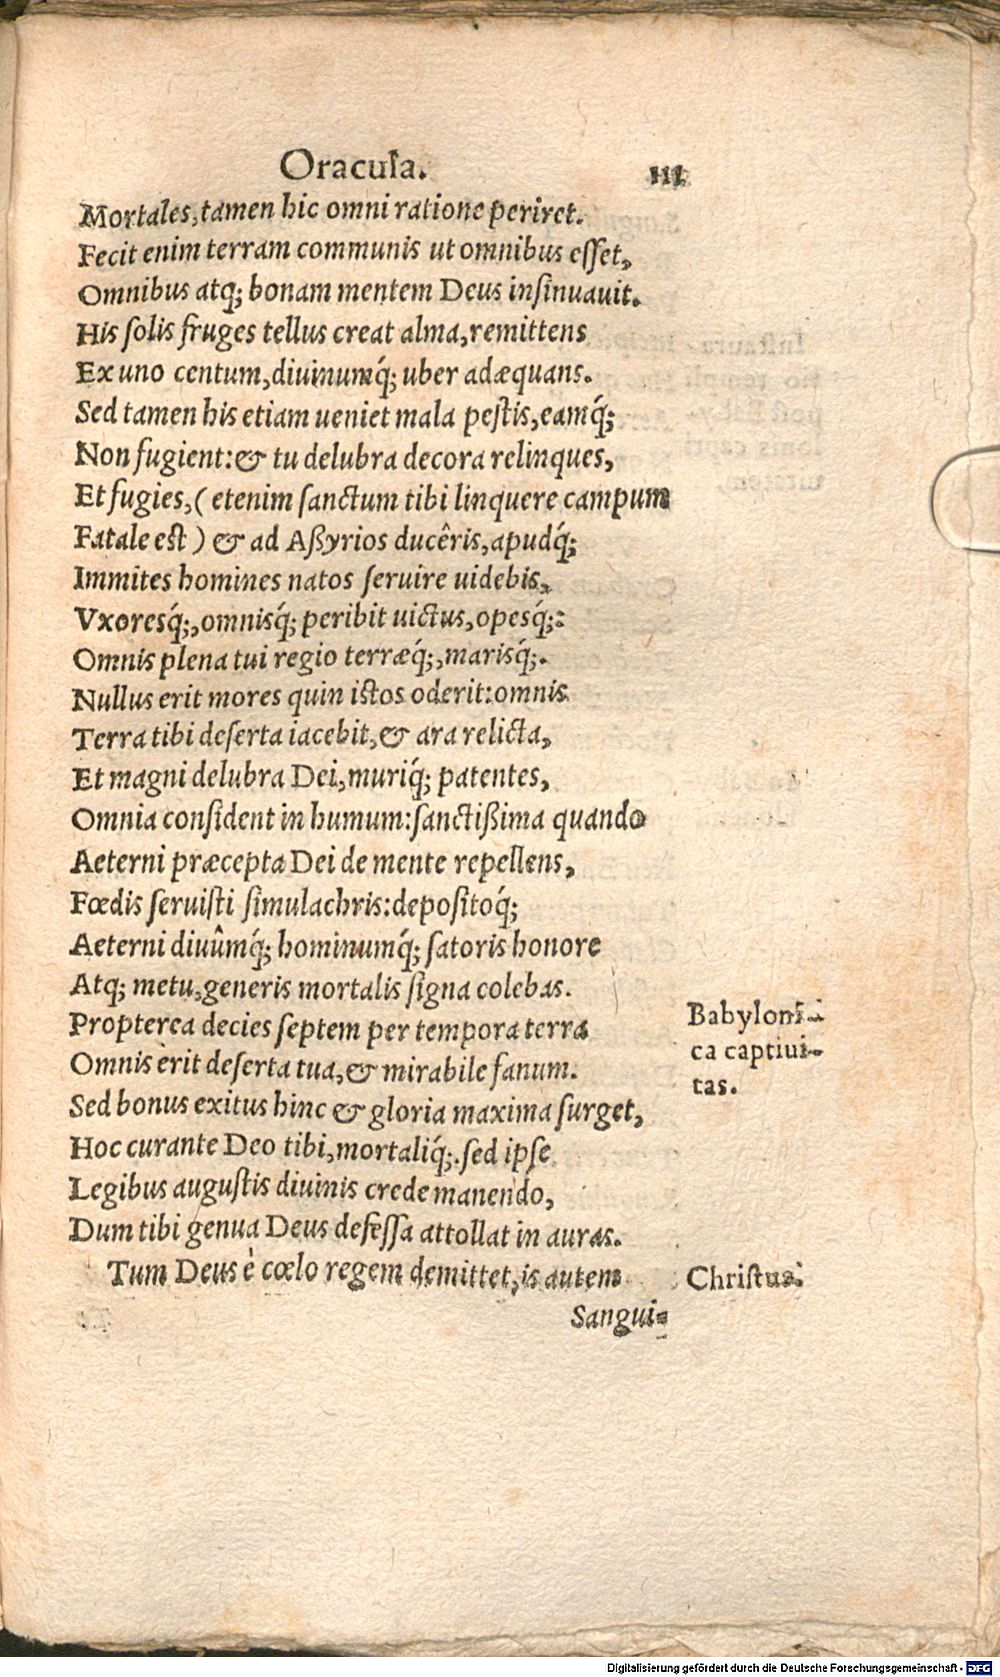 Oracula. III
Mortales, tamen hic omni ratione periret.
Fecit enim terram communis ut omnibus esset,
Omnibus atq; bonam mentem Deus insinuauit.
His solis fruges tellus creat alma, remittens
Ex uno centum, diuinumq́; uber adæquans.
Sed tamen his etiam ueniet mala pestis, eamq́;
Non fugient: & tu delubra decora relinques,
Et fugies, ( etenim sanctum tibi linquere campum
Fatale est ) & ad Aßyrios ducêris, apudq́;
Immites homines natos seruire uidebis,
Vxoresq́;, omnisq́; peribit uictus, opesq́;:
Omnis plena tui regio terræq́;, marisq́;.
Nullus erit mores quin istos oderit: omnis
Terra tibi deserta iacebit, & ara relicta,
Et magni delubra Dei, muriq́; patentes,
Omnia consident in humum: sanctißima quando
Aeterni præcepta Dei de mente repellens,
Fœdis seruisti simulachris: depositoq́;
Aeterni diuûmq́; hominumq́; satoris honore
Atq; metu, generis mortalis signa colebas.
Propterea decies septem per tempora terra
Omnis erit deserta tua, & mirabile fanum.
Sed bonus exitus hinc & gloria maxima surget,
Hoc curante Deo tibi, mortaliq́;. sed ipse
Legibus augustis diuinis crede manendo,
Dum tibi genua Deus defessa attollat in auras.
Tum Deus è cœlo regem demittet, is autem
Sangui-
Babyloni-
ca captiui-
tas.
Christus.
Digitalisierung gefördert durch die Deutsche Forschungsgemeinschaft - DFG